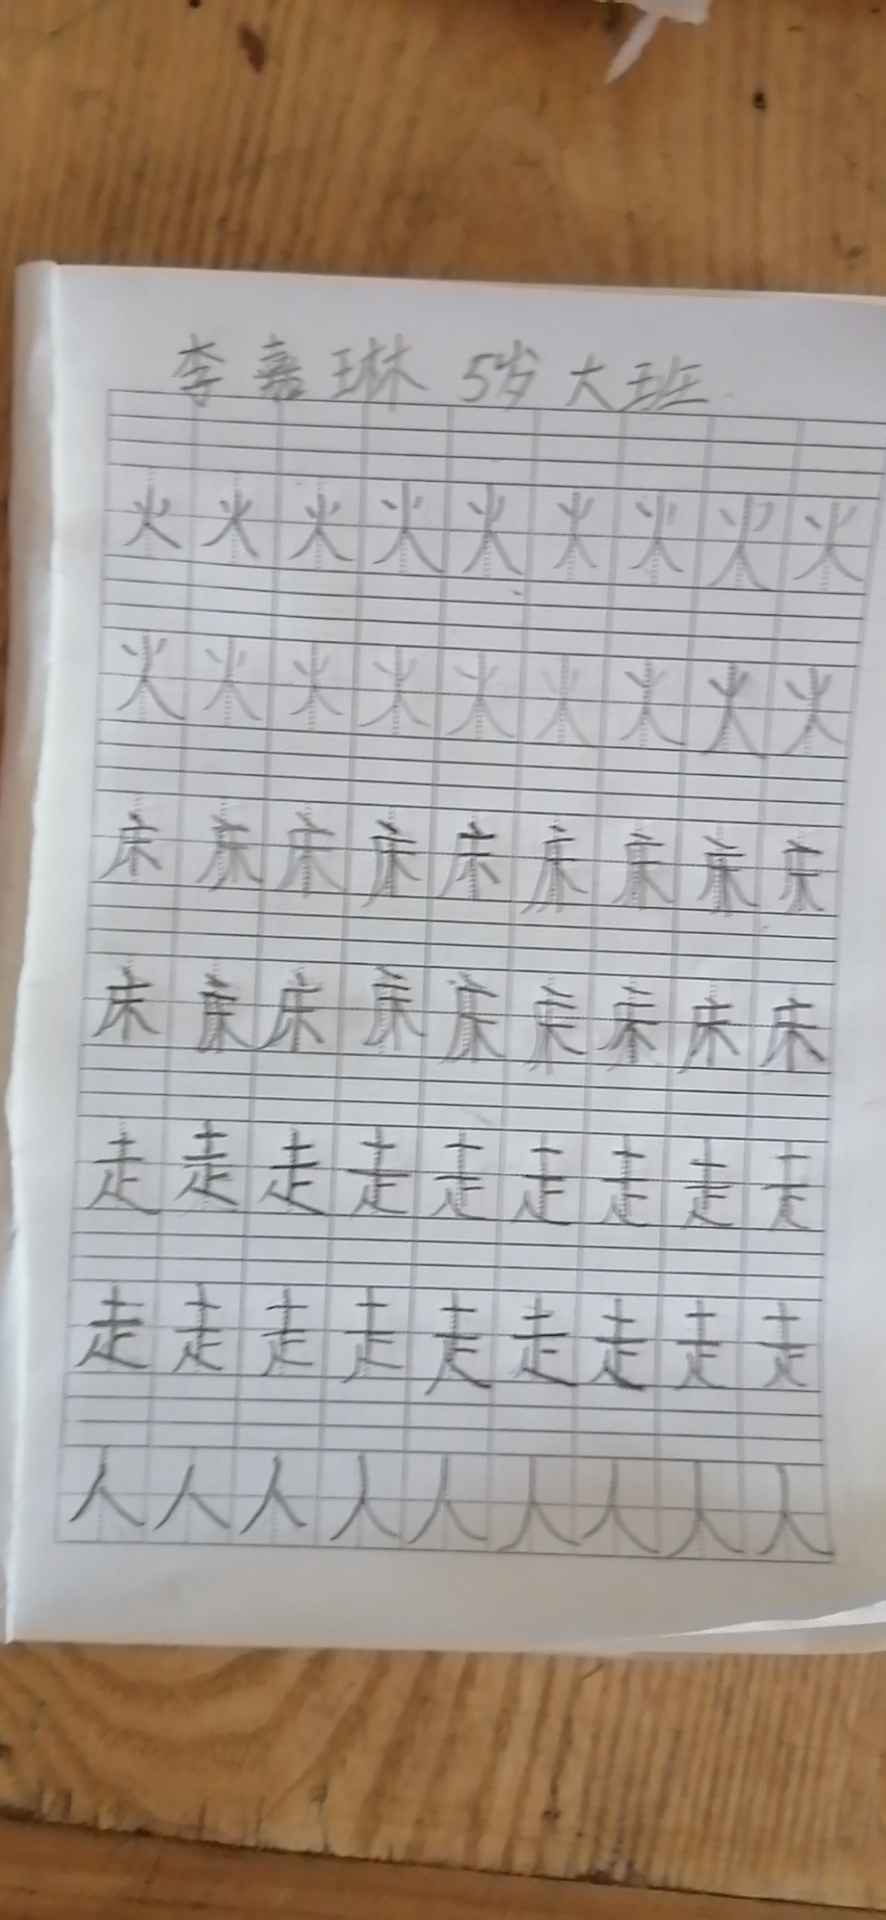 李嘉琳 5岁 大班
火火火火火火火火火
火火火火火火火火火
床床床床床床床床床
床床床床床床床床床
走走走走走走走走走
走走走走走走走走走
人人人人人人人人人